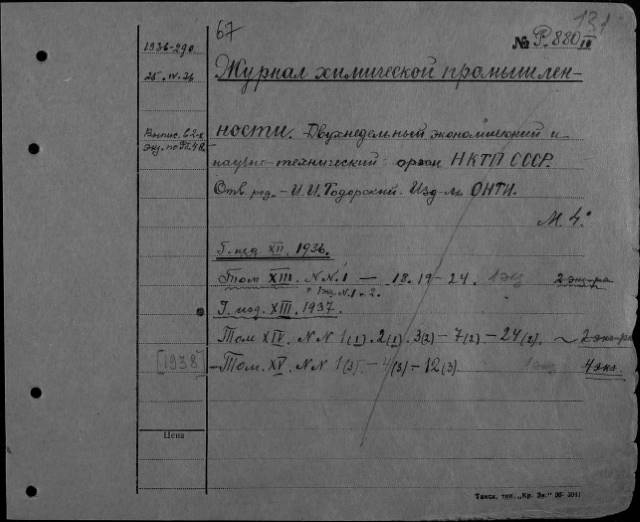 67
131
№ Р.880 IV
1936-290
25.IV.36
Журнал химической промышлен-
Выпис. 62-х
экз. по
ности. Двухнедельный экономический и
научно-технический орган НКТП СССР.
Отв. ред. - И.И. Тодорский. Изд-во ОНТИ.
М. 4°
Г. изд. XII. 1936.
Том XIII. NN. 1 — 18. 19 - 24. 1 экз 2 экз-ра
+ 1 экз N.1 - 2.
Г. изд. XIII. 1937.
Том XIV. NN 1(1). 2(1). 3(2) - 7(2) - 24(2). ~ 2 экз-ра
[1938] - Том. XV. NN 1(3). - 4(3) - 12(3) 1 экз 4 экз.
Цена
Тамск. тип. „Кр. Зн." 36-3041